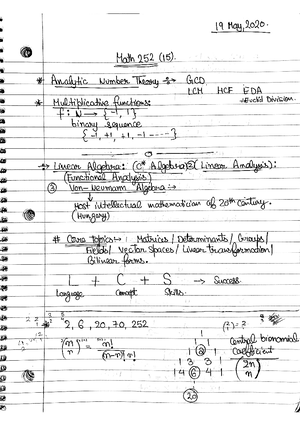 19 May, 2020.
Math 252 (15).
* Analytic Number Theory :→ GCD
LCM HCF EDA
→Euclid Division.
* Multiplicative functions:
f: N → {-1, 1}
binary sequence
{-1, +1, +1, -1 ----}
→ Linear Algebra: (C* Algebra) (Linear Analysis):
(Functional Analysis)
Von-Neumann Algebra :→
Most intellectual mathematician of 20th century.
(Hungery)
* Core topics→ : Matrices / Determinants / Groups /
Fields / Vector Spaces / Linear transformation /
Bilinear forms.
L + C + S → Success.
Language Concept Skills.
2, 6, 20, 70, 252
1
1 2 1
1 3 3 1
1 4 6 4 1
20
Central binomial
Coefficient
(2n
n)
(n
n) = n!
(n-n)! n!